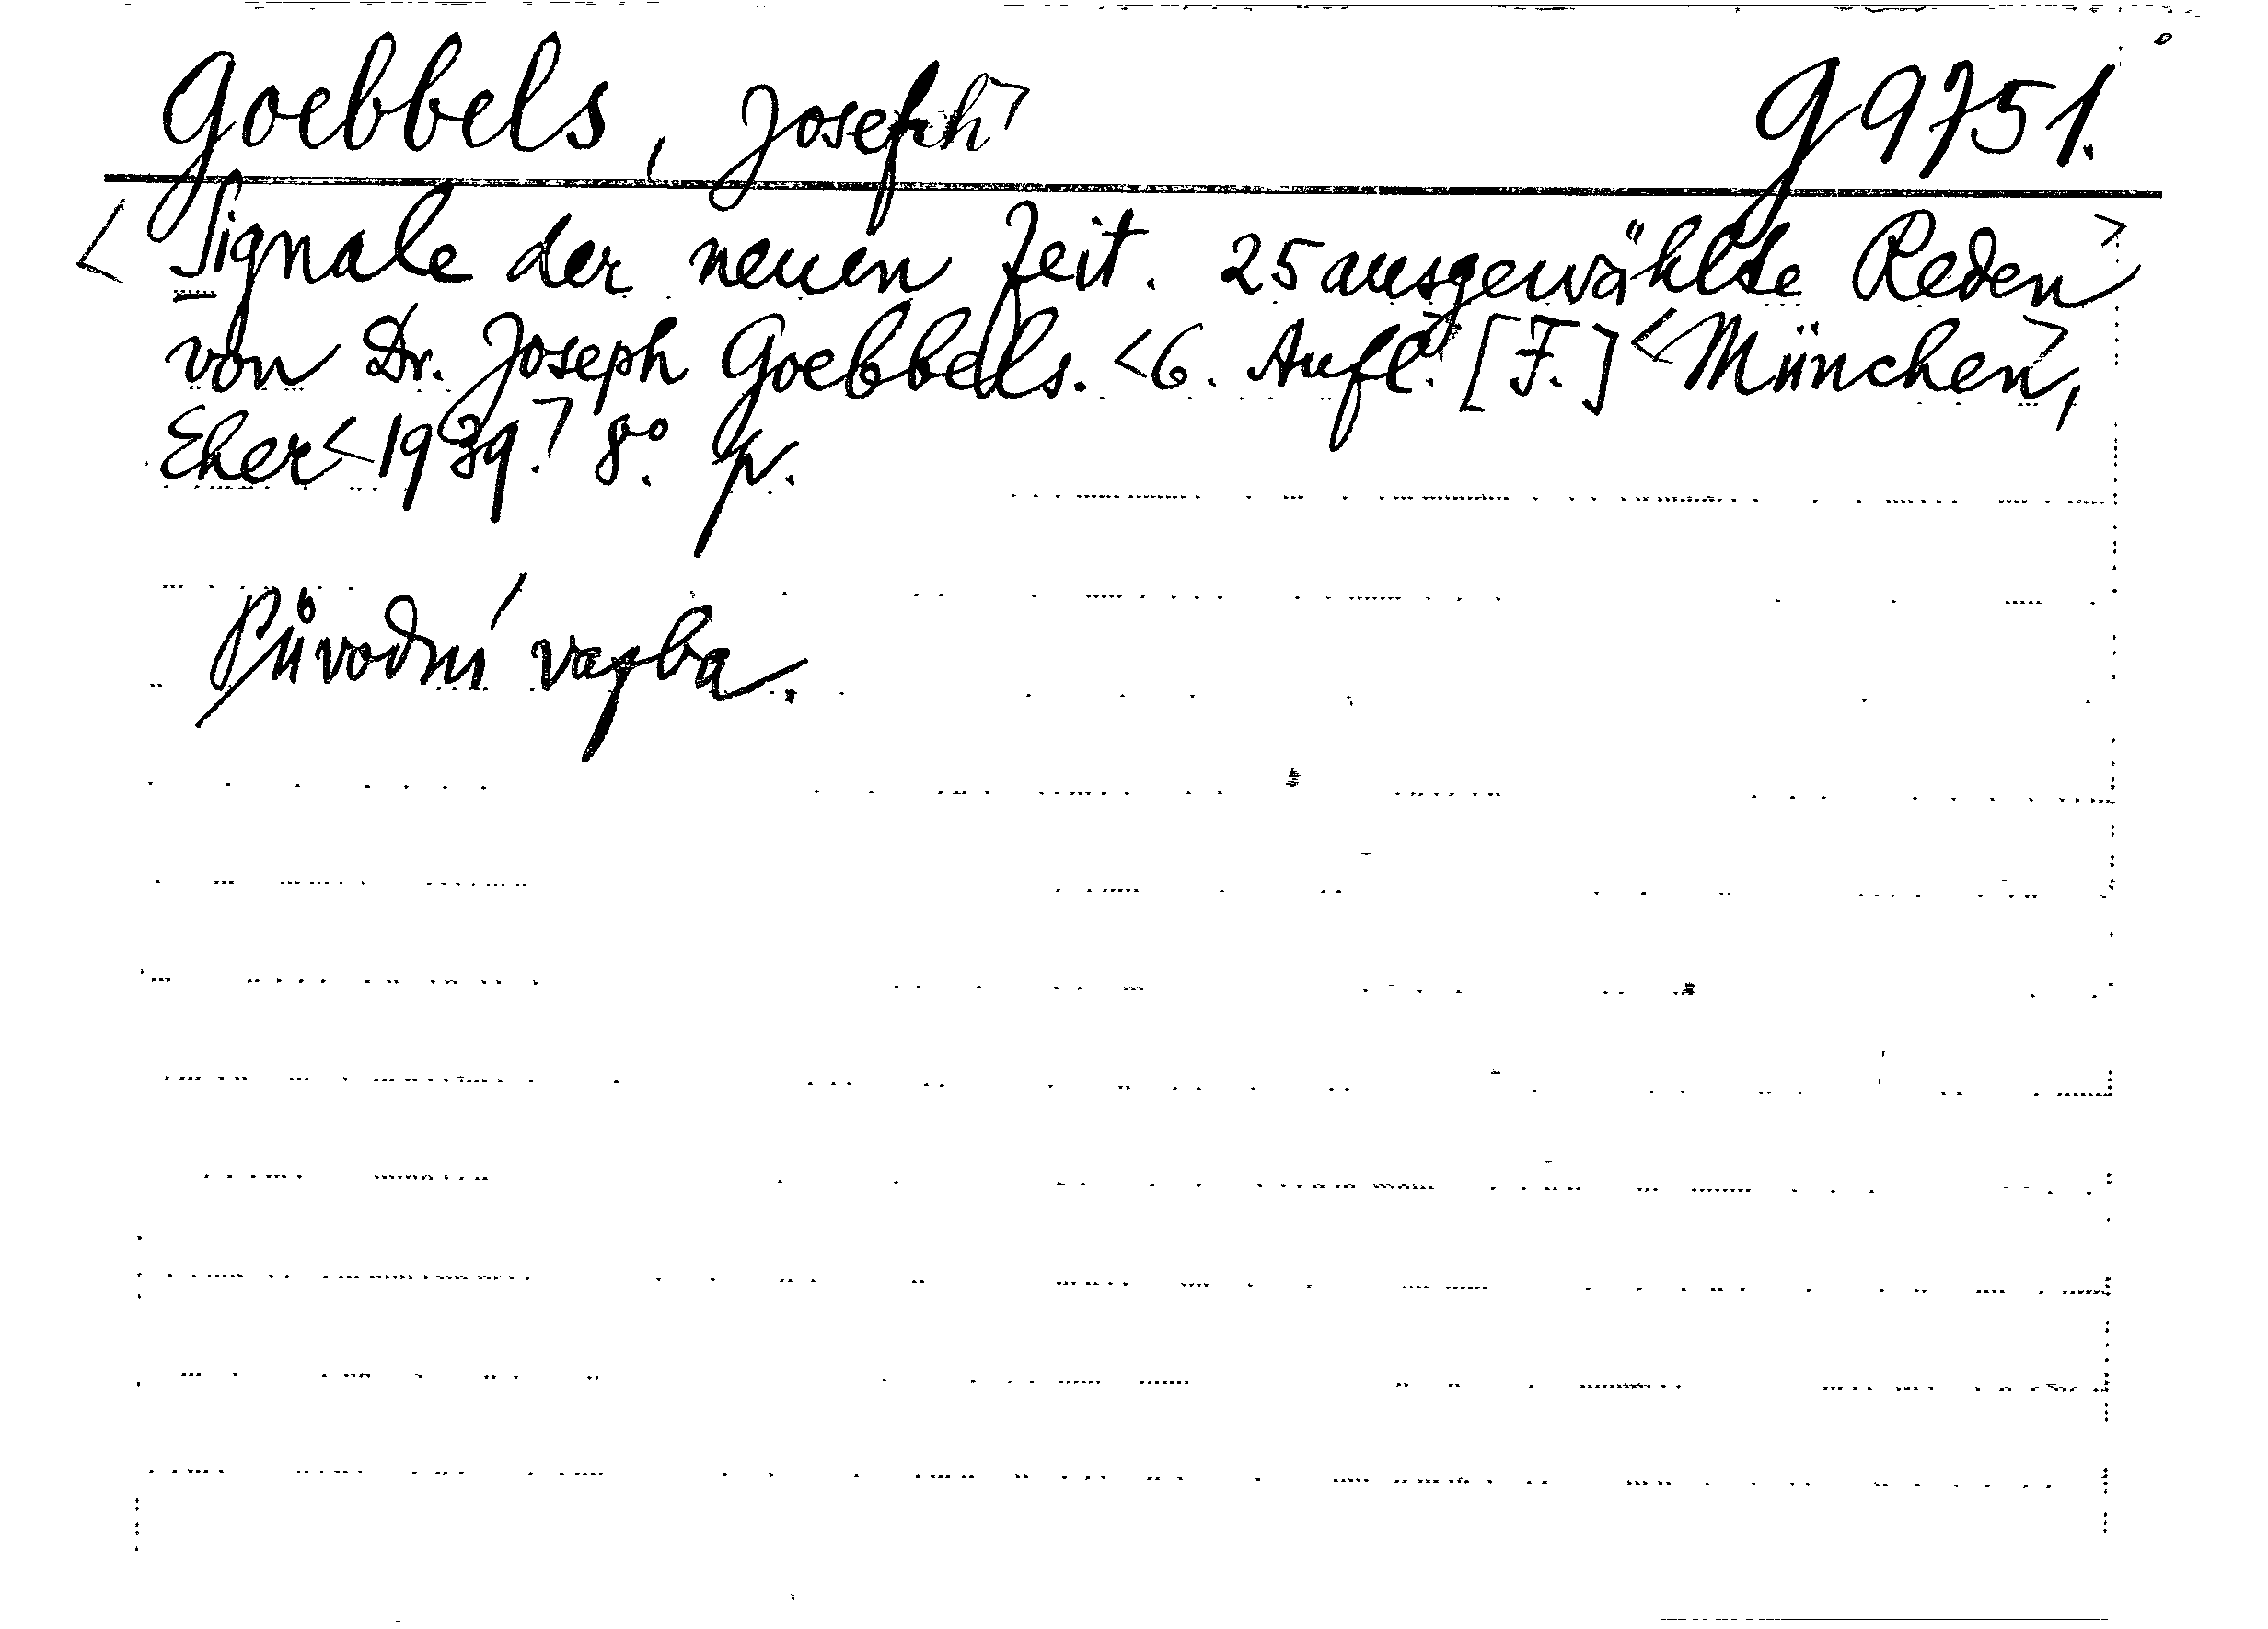 Goebbels, Joseph> G 9751.
< Signale der neuen Zeit. 25 ausgewählte Reden>
von Dr. Joseph Goebbels. <6. Aufl.> [F.] <München>,
Eher <1939.> 8°. p.
Původní vazba.